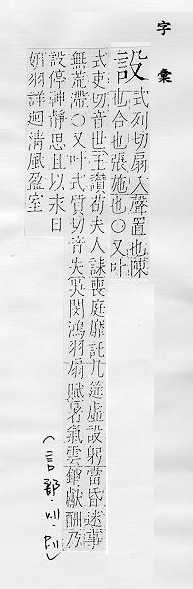 字彙
設
式列切扇入聲置也陳
也合也張施也○又叶
式吏切音世王讚荀夫人誄喪庭靡託几筵虛設躬當昏迷事
無荒滯○又叶式質切音失吳閔鴻羽扇賦暑氣雲銷獻酬乃
設停神靜思且以永日
妍羽詳迴淸風盈室
(言部·三·